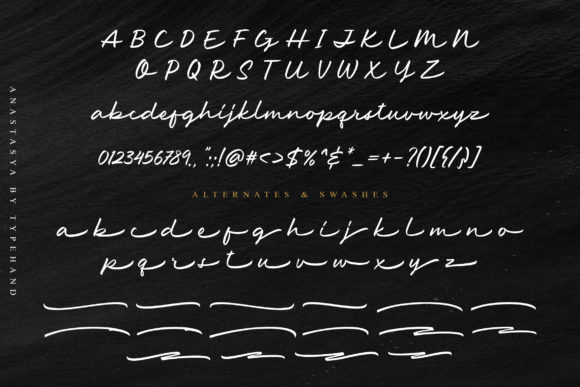 A B C D E F G H I J K L M N
O P Q R S T U V W X Y Z
abcdefghijklmnopqrstuvwxyz
0123456789.,":;!@#<>$%^&*_=+-?()[{/}]
ALTERNATES & SWASHES
a b c d e f g h i j k l m n o
p q r s t u v w x y z
ANASTASYA BY TYPEHAND